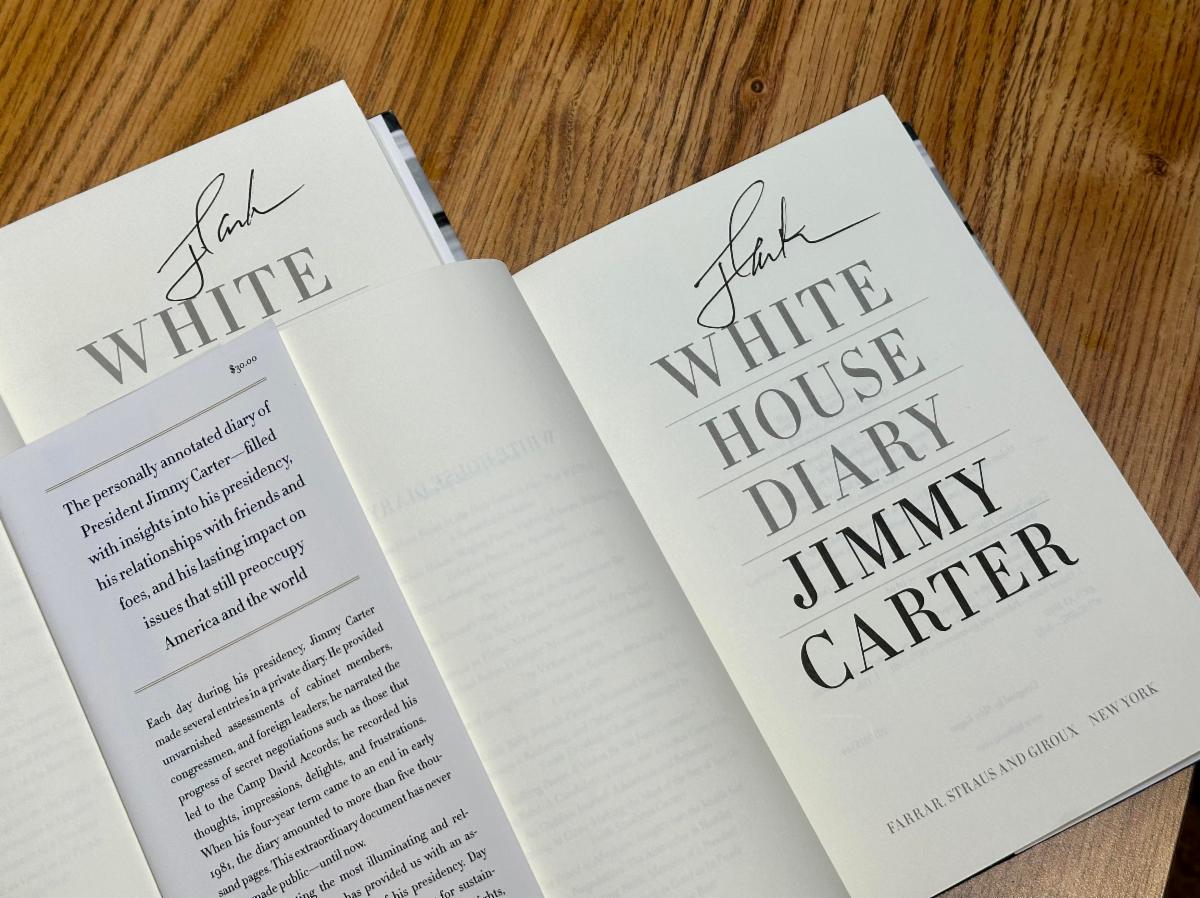 WHITE
$30.00
The personally annotated diary of
President Jimmy Carter—filled
with insights into his presidency,
his relationships with friends and
foes, and his lasting impact on
issues that still preoccupy
America and the world
Each day during his presidency, Jimmy Carter
made several entries in a private diary. He provided
unvarnished assessments of cabinet members,
congressmen, and foreign leaders; he narrated the
progress of secret negotiations such as those that
led to the Camp David Accords; he recorded his
thoughts, impressions, delights, and frustrations.
When his four-year term came to an end in early
1981, the diary amounted to more than five thou-
sand pages. This extraordinary document has never
made public—until now.
ting the most illuminating and rel-
has provided us with an as-
his presidency. Day
for sustain-
WHITE
HOUSE
DIARY
JIMMY
CARTER
FARRAR, STRAUS AND GIROUX NEW YORK